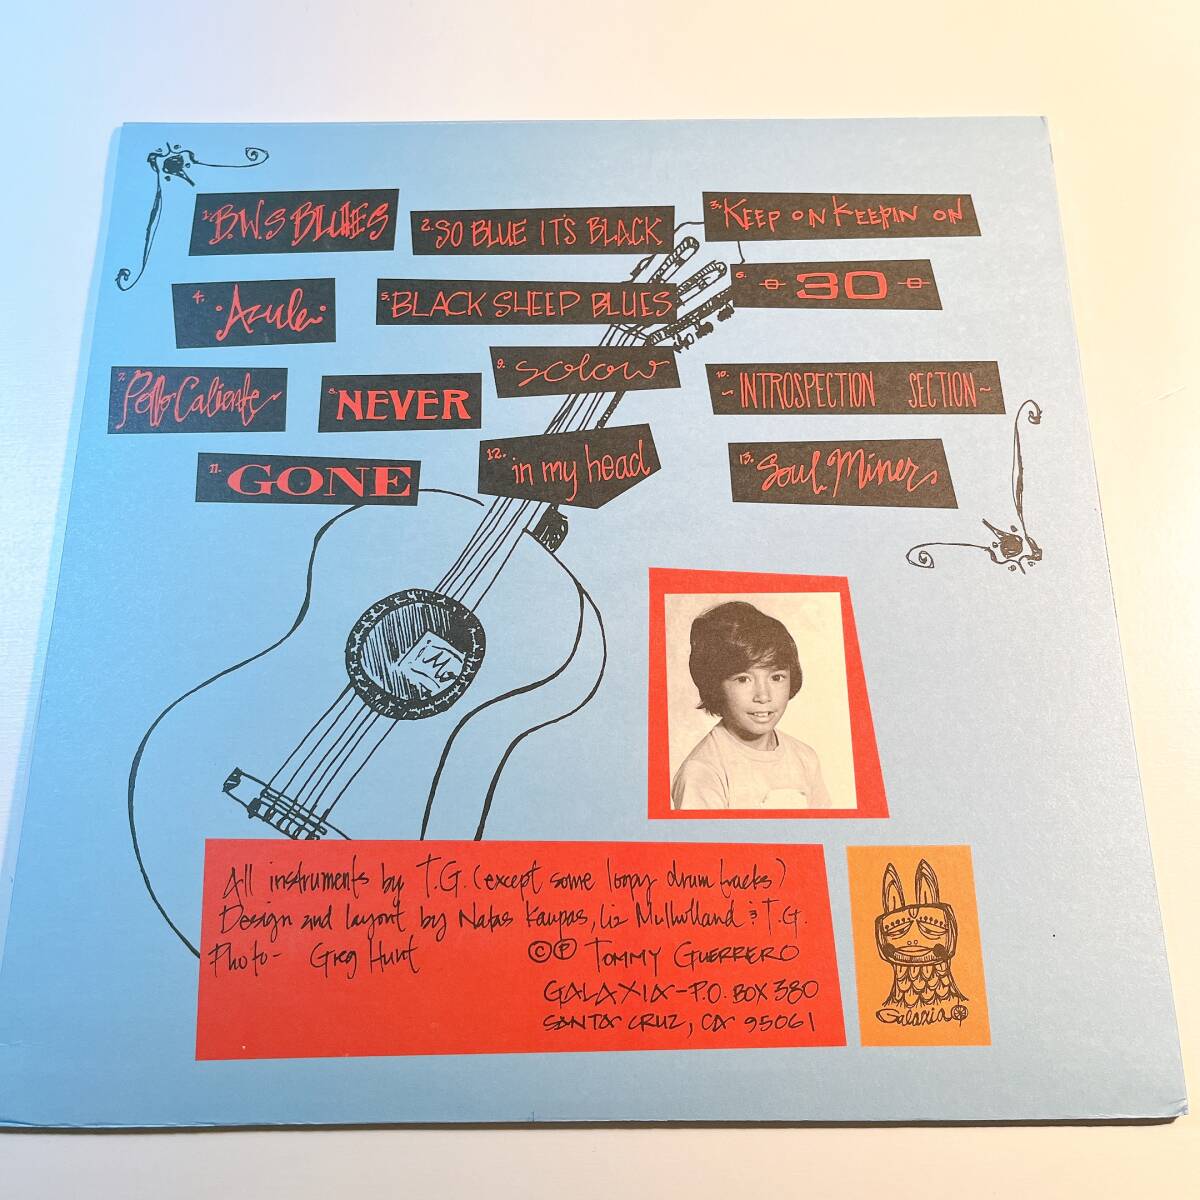 1. B.W.S BLUES
2. SO BLUE IT'S BLACK
3. KEEP ON KEEPIN ON
4. Azule
5. BLACK SHEEP BLUES
6. -30-
7. Pollo Caliente
8. NEVER
9. Solow
10. ~INTROSPECTION SECTION~
11. GONE
12. in my head
13. Soul Miner
All instruments by T.G. (except some loopy drum tracks)
Design and layout by Natas Kaupas, Liz Mulholland & T.G.
Photo- Greg Hunt
©℗ TOMMY GUERRERO
GALAXIA-P.O. BOX 380
SANTA CRUZ, CA 95061
Galaxia